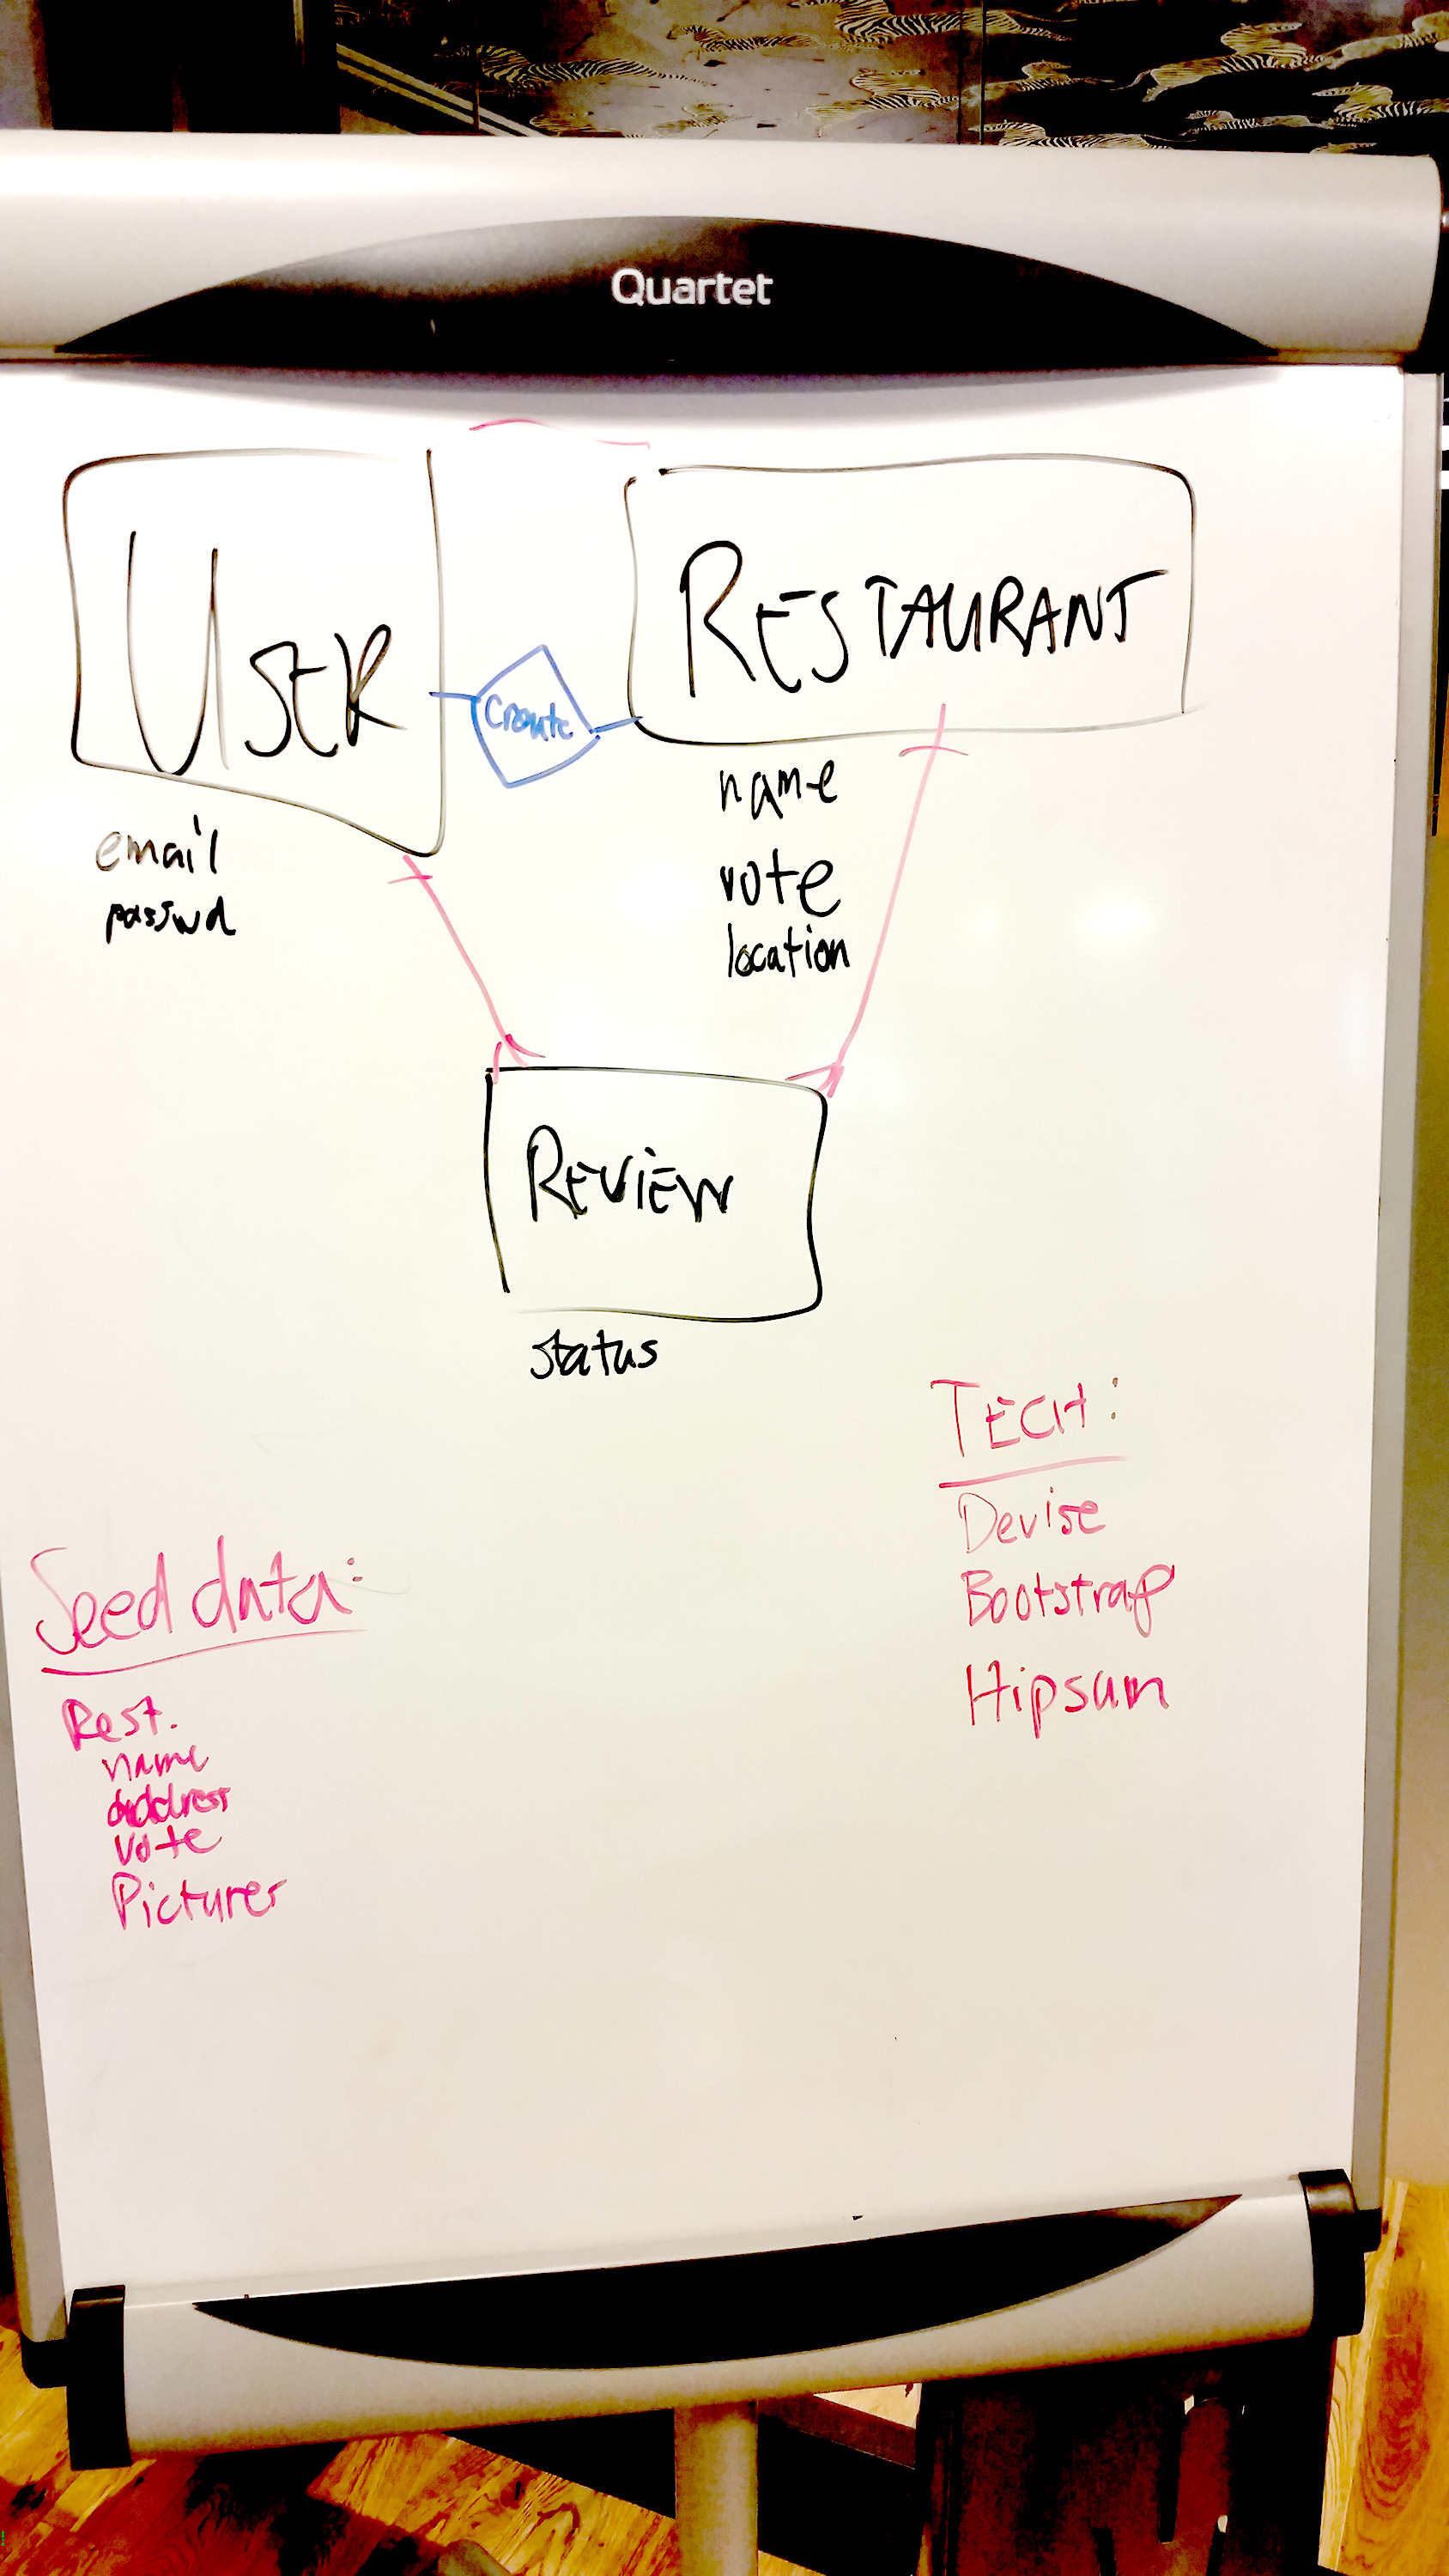 Quartet
USER
RESTAURANT
Create
email
passwd
name
vote
location
REVIEW
status
TECH:
Devise
Bootstrap
Hipsum
Seed data:
Rest.
name
address
vote
Pictures